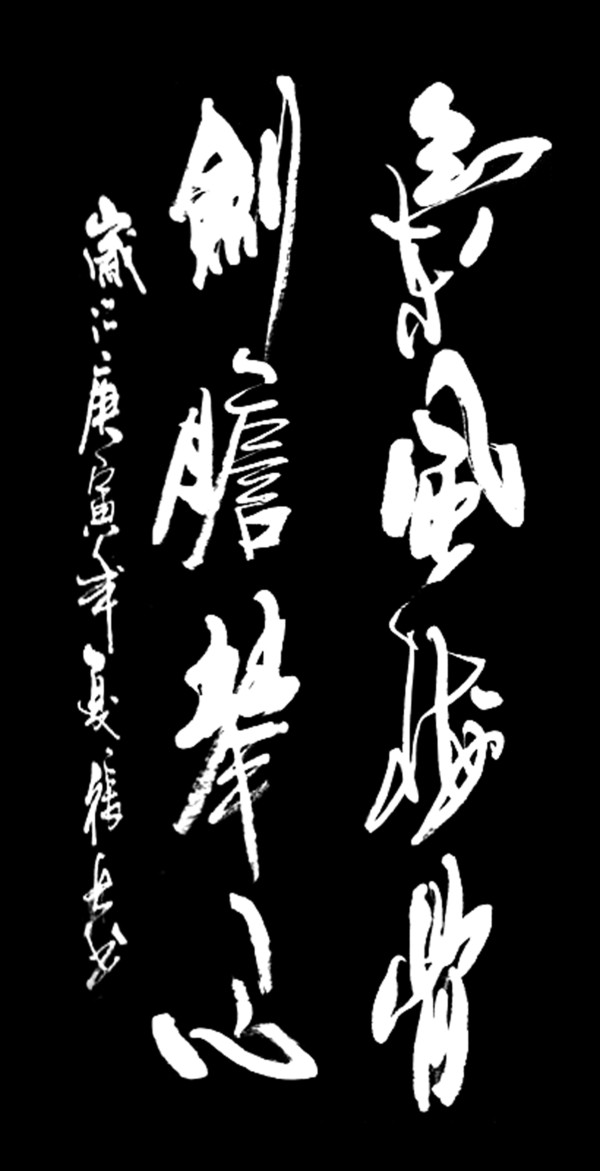 風梅骨
劍膽琴心
歲次庚寅年夏張书